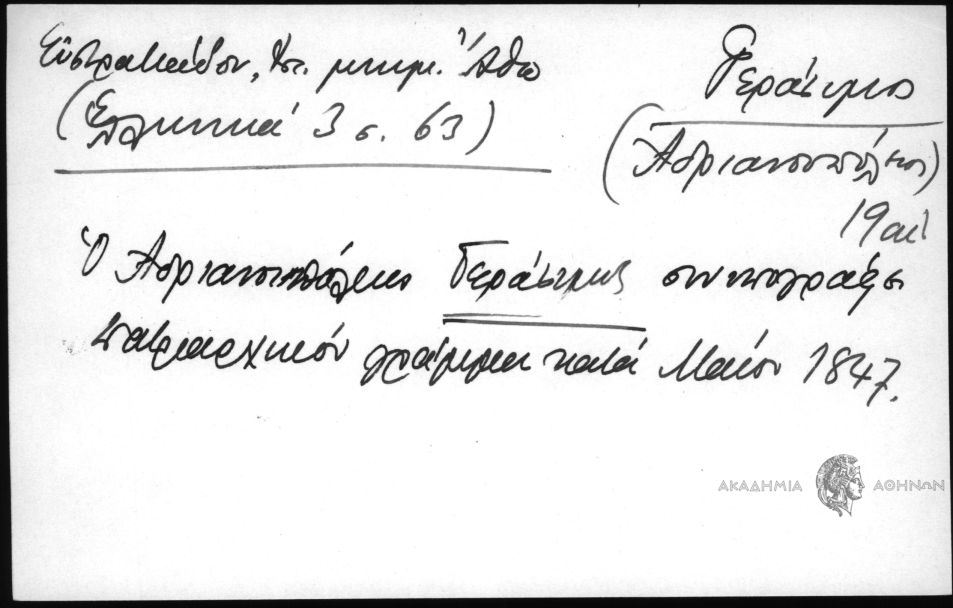 Εὐστρατιάδου, Ἱστ. μνημ. Ἄθω
(Ἑλληνικά 3 σ. 63)
Γεράσιμος
(Ἀδριανουπόλεως)
19 αἰ
Ὁ Ἀδριανουπόλεως Γεράσιμος συνυπογράφει
πατριαρχικόν γράμμα κατά Μαϊον 1847.
ΑΚΑΔΗΜΙΑ ΑΘΗΝΩΝ